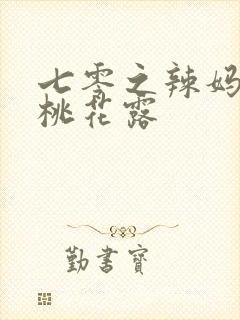 七零之辣妈
桃花露
勤書寶